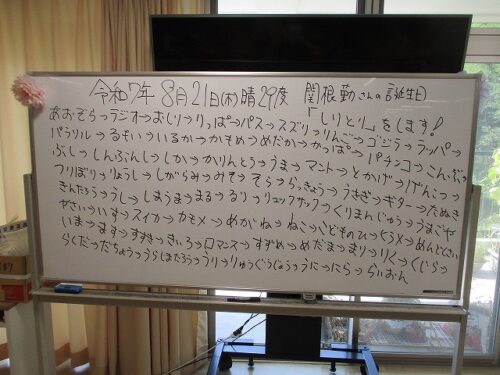 令和7年 8月21日(木)晴29度 関根勤さんの誕生日
「しりとり」をします!
あおぞら→ラジオ→おしり→りっぱ→パス→スズリ→りんご→ゴジラ→ラッパ→
パラソル→るすい→いるか→かもめ→めだか→かっぱ→パチンコ→こんぶ→
ぶし→しんぶんし→しか→かりんとう→うま→マント→とかげ→げんこつ→
つりぼり→りょうし→しがらみ→みそ→そら→らっきょう→うさぎ→ギター→たぬき
きんたろう→うし→しまうま→まる→るり→リュックサック→くりまんじゅう→うまごや
やさい→いす→スイカ→カモメ→めがね→ねこ→こどものひ→ヒラメ→めんどくさい
いま→ます→すずき→きいろ→ロマンス→すずめ→めだま→まり→りく→くじら→
らくだ→だちょう→うらしまたろう→うり→りゅうぐうじょう→うに→にら→らいおん